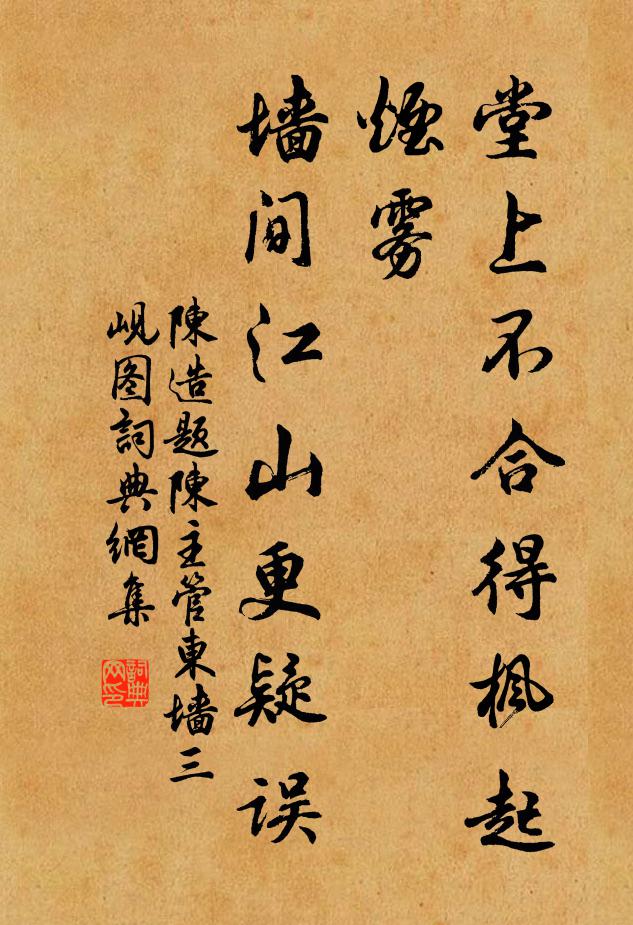 堂上不合得枫起
烟雾
墙间江山更疑误
陳造題陳主管東墙三
峴图詞典網集
詞典
网印